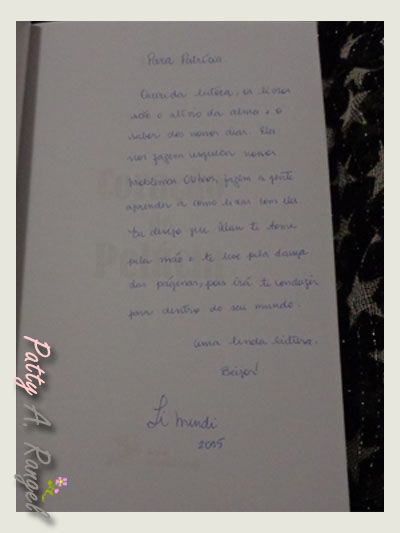 Para Patrícia
Querida leitora, os livros
são o alívio da alma e o
sabor dos nossos dias. Eles
nos fazem esquecer nossos
problemas. Outros, fazem a gente
aprender a como lidar com eles
Eu desejo que Alan te tome
pela mão e te leve pela dança
das páginas, pois irá te conduzir
para dentro do seu mundo.
Uma linda leitura.
Beijos!
Li Mendi
2015
Patty A. Rangel